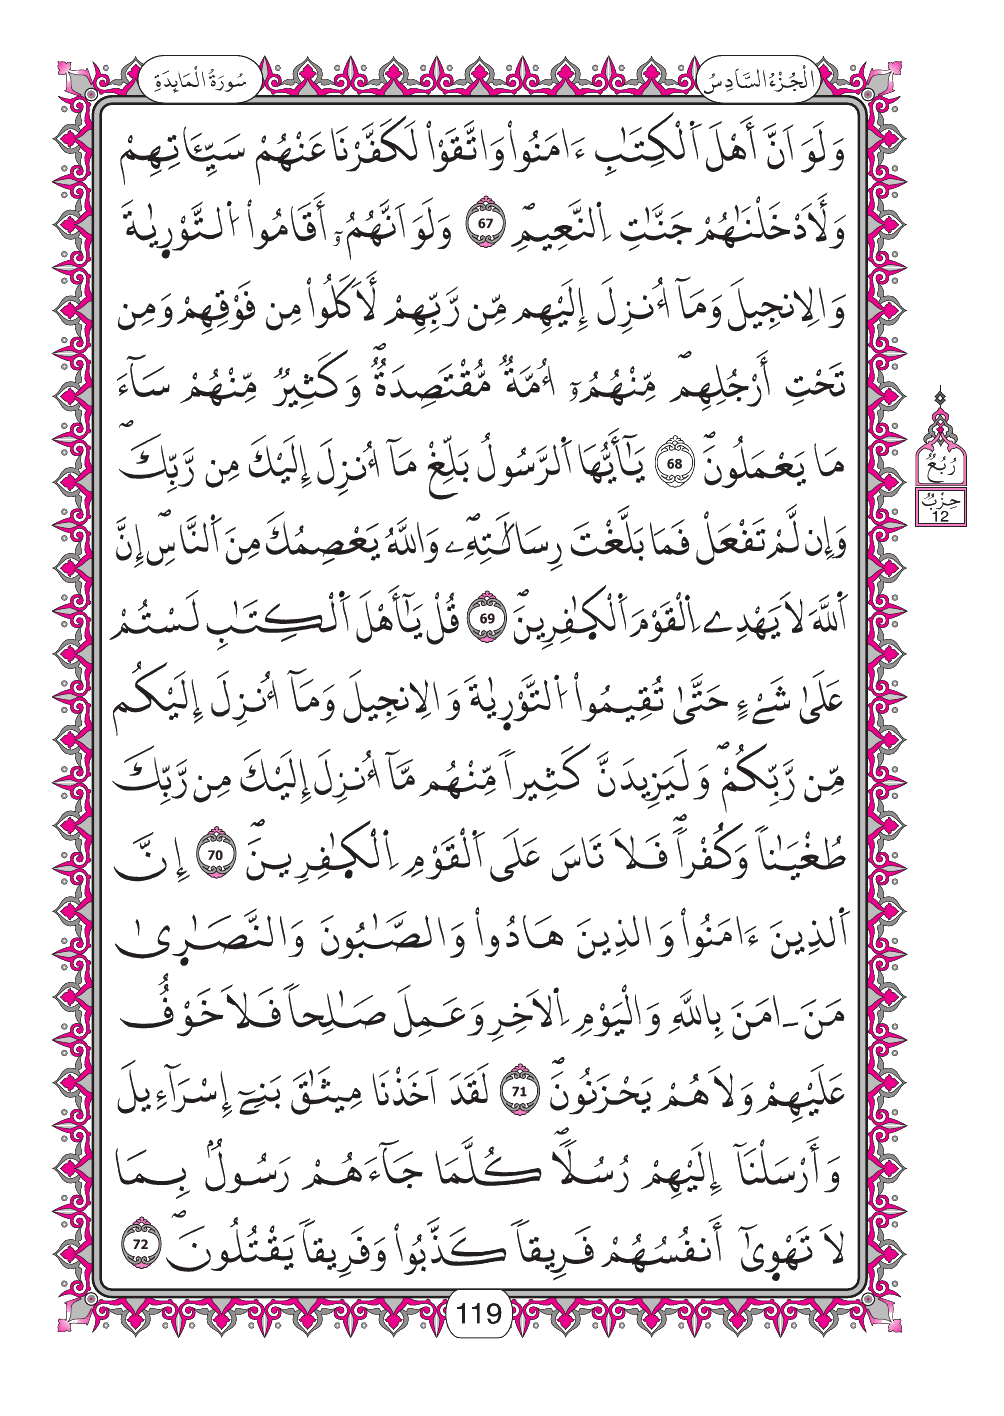 الْجُزْءُ السَّادِسُ
سُورَةُ الْمَائِدَةِ
وَلَوَ اَنَّ أَهْلَ اَلْكِتَٰبِ ءَامَنُواْ وَاتَّقَوْاْ لَكَفَّرْنَا عَنْهُمْ سَيِّـَٔاتِهِمْ
وَلَأَدْخَلْنَٰهُمْ جَنَّٰتِ اِلنَّعِيمِۖ 67 وَلَوَ اَنَّهُمُۥٓ أَقَامُواْ اُلتَّوْرِيٰةَ
وَالِانجِيلَ وَمَآ أُنزِلَ إِلَيْهِم مِّن رَّبِّهِمْ لَأَكَلُواْ مِن فَوْقِهِمْ وَمِن
تَحْتِ أَرْجُلِهِمۖ مِّنْهُمُۥٓ أُمَّةٞ مُّقْتَصِدَةٞۖ وَكَثِيرٞ مِّنْهُمْ سَآءَ
مَا يَعْمَلُونَۖ 68 يَٰٓأَيُّهَا اَلرَّسُولُ بَلِّغْ مَآ أُنزِلَ إِلَيْكَ مِن رَّبِّكَۖ
وَإِن لَّمْ تَفْعَلْ فَمَا بَلَّغْتَ رِسَالَٰتِهِۦۖ وَاللَّهُ يَعْصِمُكَ مِنَ اَلنَّاسِۖ إِنَّ
اَللَّهَ لَا يَهْدِے اِلْقَوْمَ اَلْكٰ۪فِرِينَۖ 69 قُلْ يَٰٓأَهْلَ اَلْكِتَٰبِ لَسْتُمْ
عَلَىٰ شَےْءٍ حَتَّىٰ تُقِيمُواْ اُلتَّوْرِيٰةَ وَالِانجِيلَ وَمَآ أُنزِلَ إِلَيْكُم
مِّن رَّبِّكُمْۖ وَلَيَزِيدَنَّ كَثِيراٗ مِّنْهُم مَّآ أُنزِلَ إِلَيْكَ مِن رَّبِّكَ
طُغْيَٰناٗ وَكُفْراٗۖ فَلَا تَاسَ عَلَى اَلْقَوْمِ اِلْكٰ۪فِرِينَۖ 70 إِنَّ
اَلذِينَ ءَامَنُواْ وَالذِينَ هَادُواْ وَالصَّٰبُونَ وَالنَّصَٰر۪ىٰ
مَنَ ـ امَنَ بِاللَّهِ وَالْيَوْمِ اِلَاخِرِ وَعَمِلَ صَٰلِحاٗ فَلَا خَوْفٌ
عَلَيْهِمْ وَلَا هُمْ يَحْزَنُونَۖ 71 لَقَدَ اَخَذْنَا مِيثَٰقَ بَنِےٓ إِسْرَآءِيلَ
وَأَرْسَلْنَآ إِلَيْهِمْ رُسُلاٗۖ كُلَّمَا جَآءَهُمْ رَسُولُۢ بِمَا
لَا تَهْو۪ىٰٓ أَنفُسُهُمْ فَرِيقاٗ كَذَّبُواْ وَفَرِيقاٗ يَقْتُلُونَۖ 72
رُبْعُ
حِزْبُ
12
119